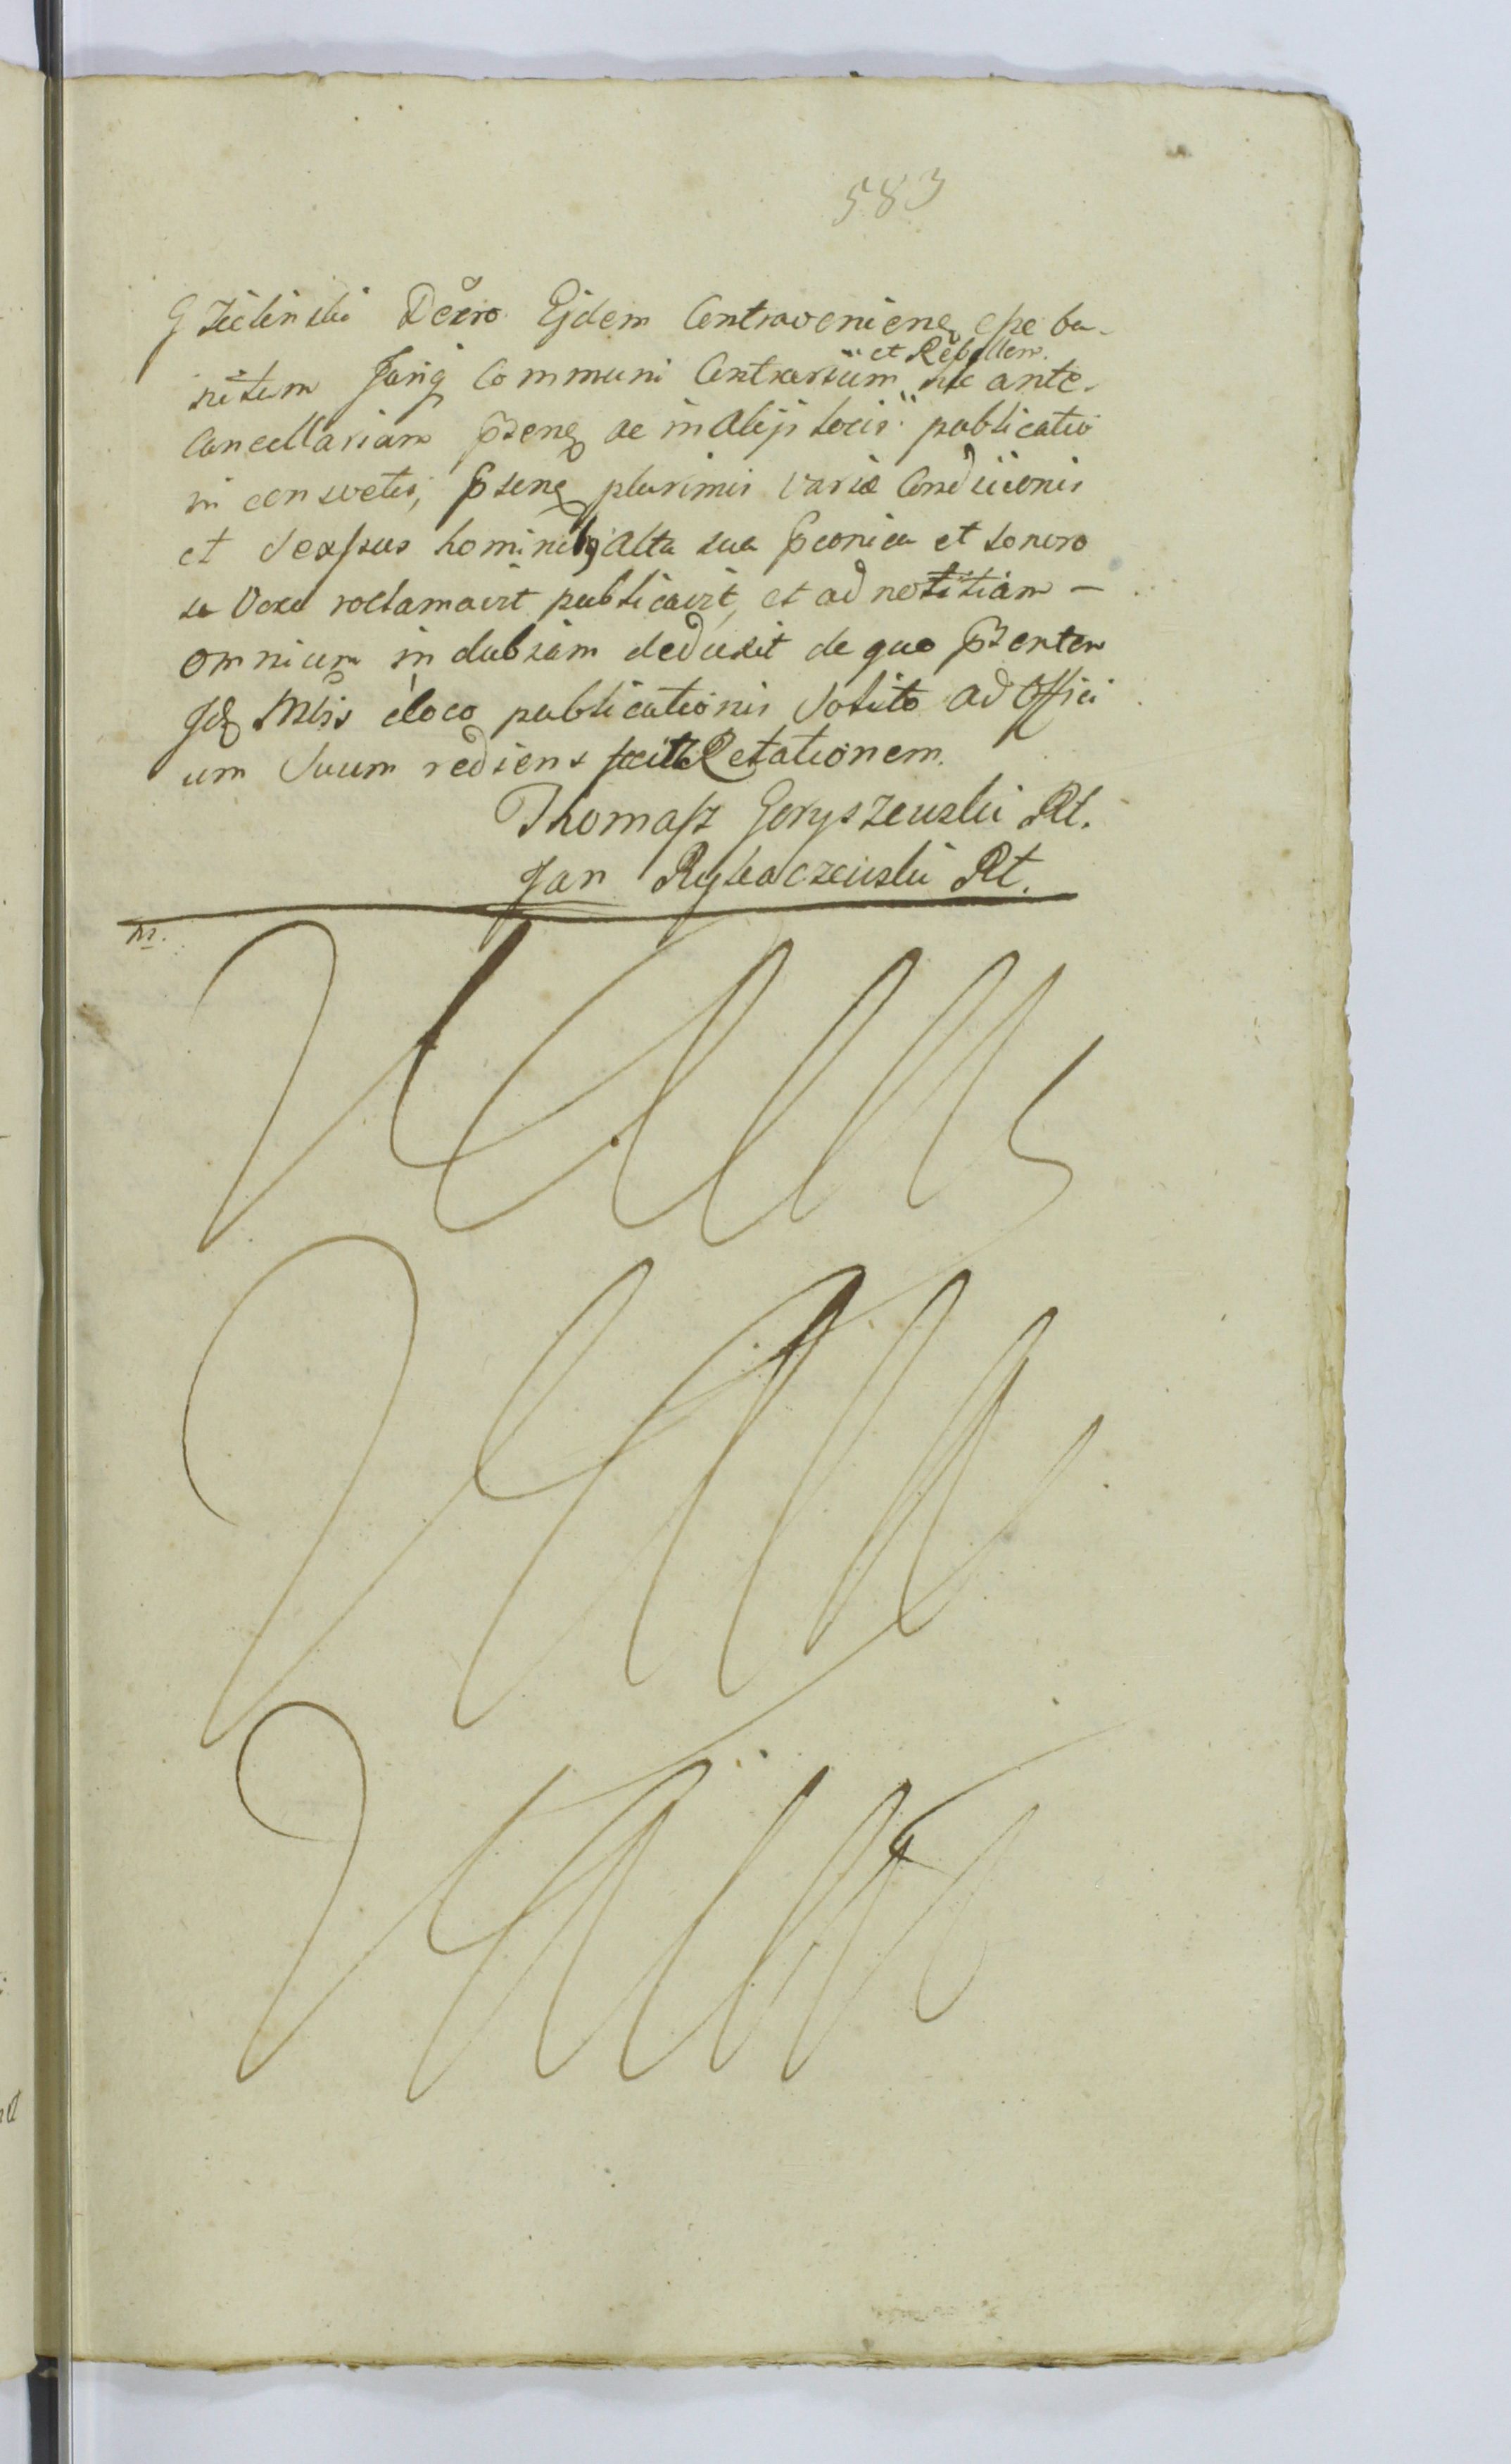 583
G Zielinski Decro Ejdem Contravenienq esse ba-
nitum Juriq Communi Contrarium et Rebellem hic ante
Cancellariam pzenq ac in Alijs locis publicatio
ni consvetis, pzenq plurimis variæ Condicionis
et Sexsus hominibq Alta sua pconica et sonoro
sa Voce roclamavit publicavit, et ad notitiam -
omnium indubiam deduxit de quo pzentem
Jdq Mtis eloco publicationis Solito ad Offici
um Suum rediens fecit Relationem.
Thomasz Goryszewski Rt.
Jan Rybaczewski Rt.
m.